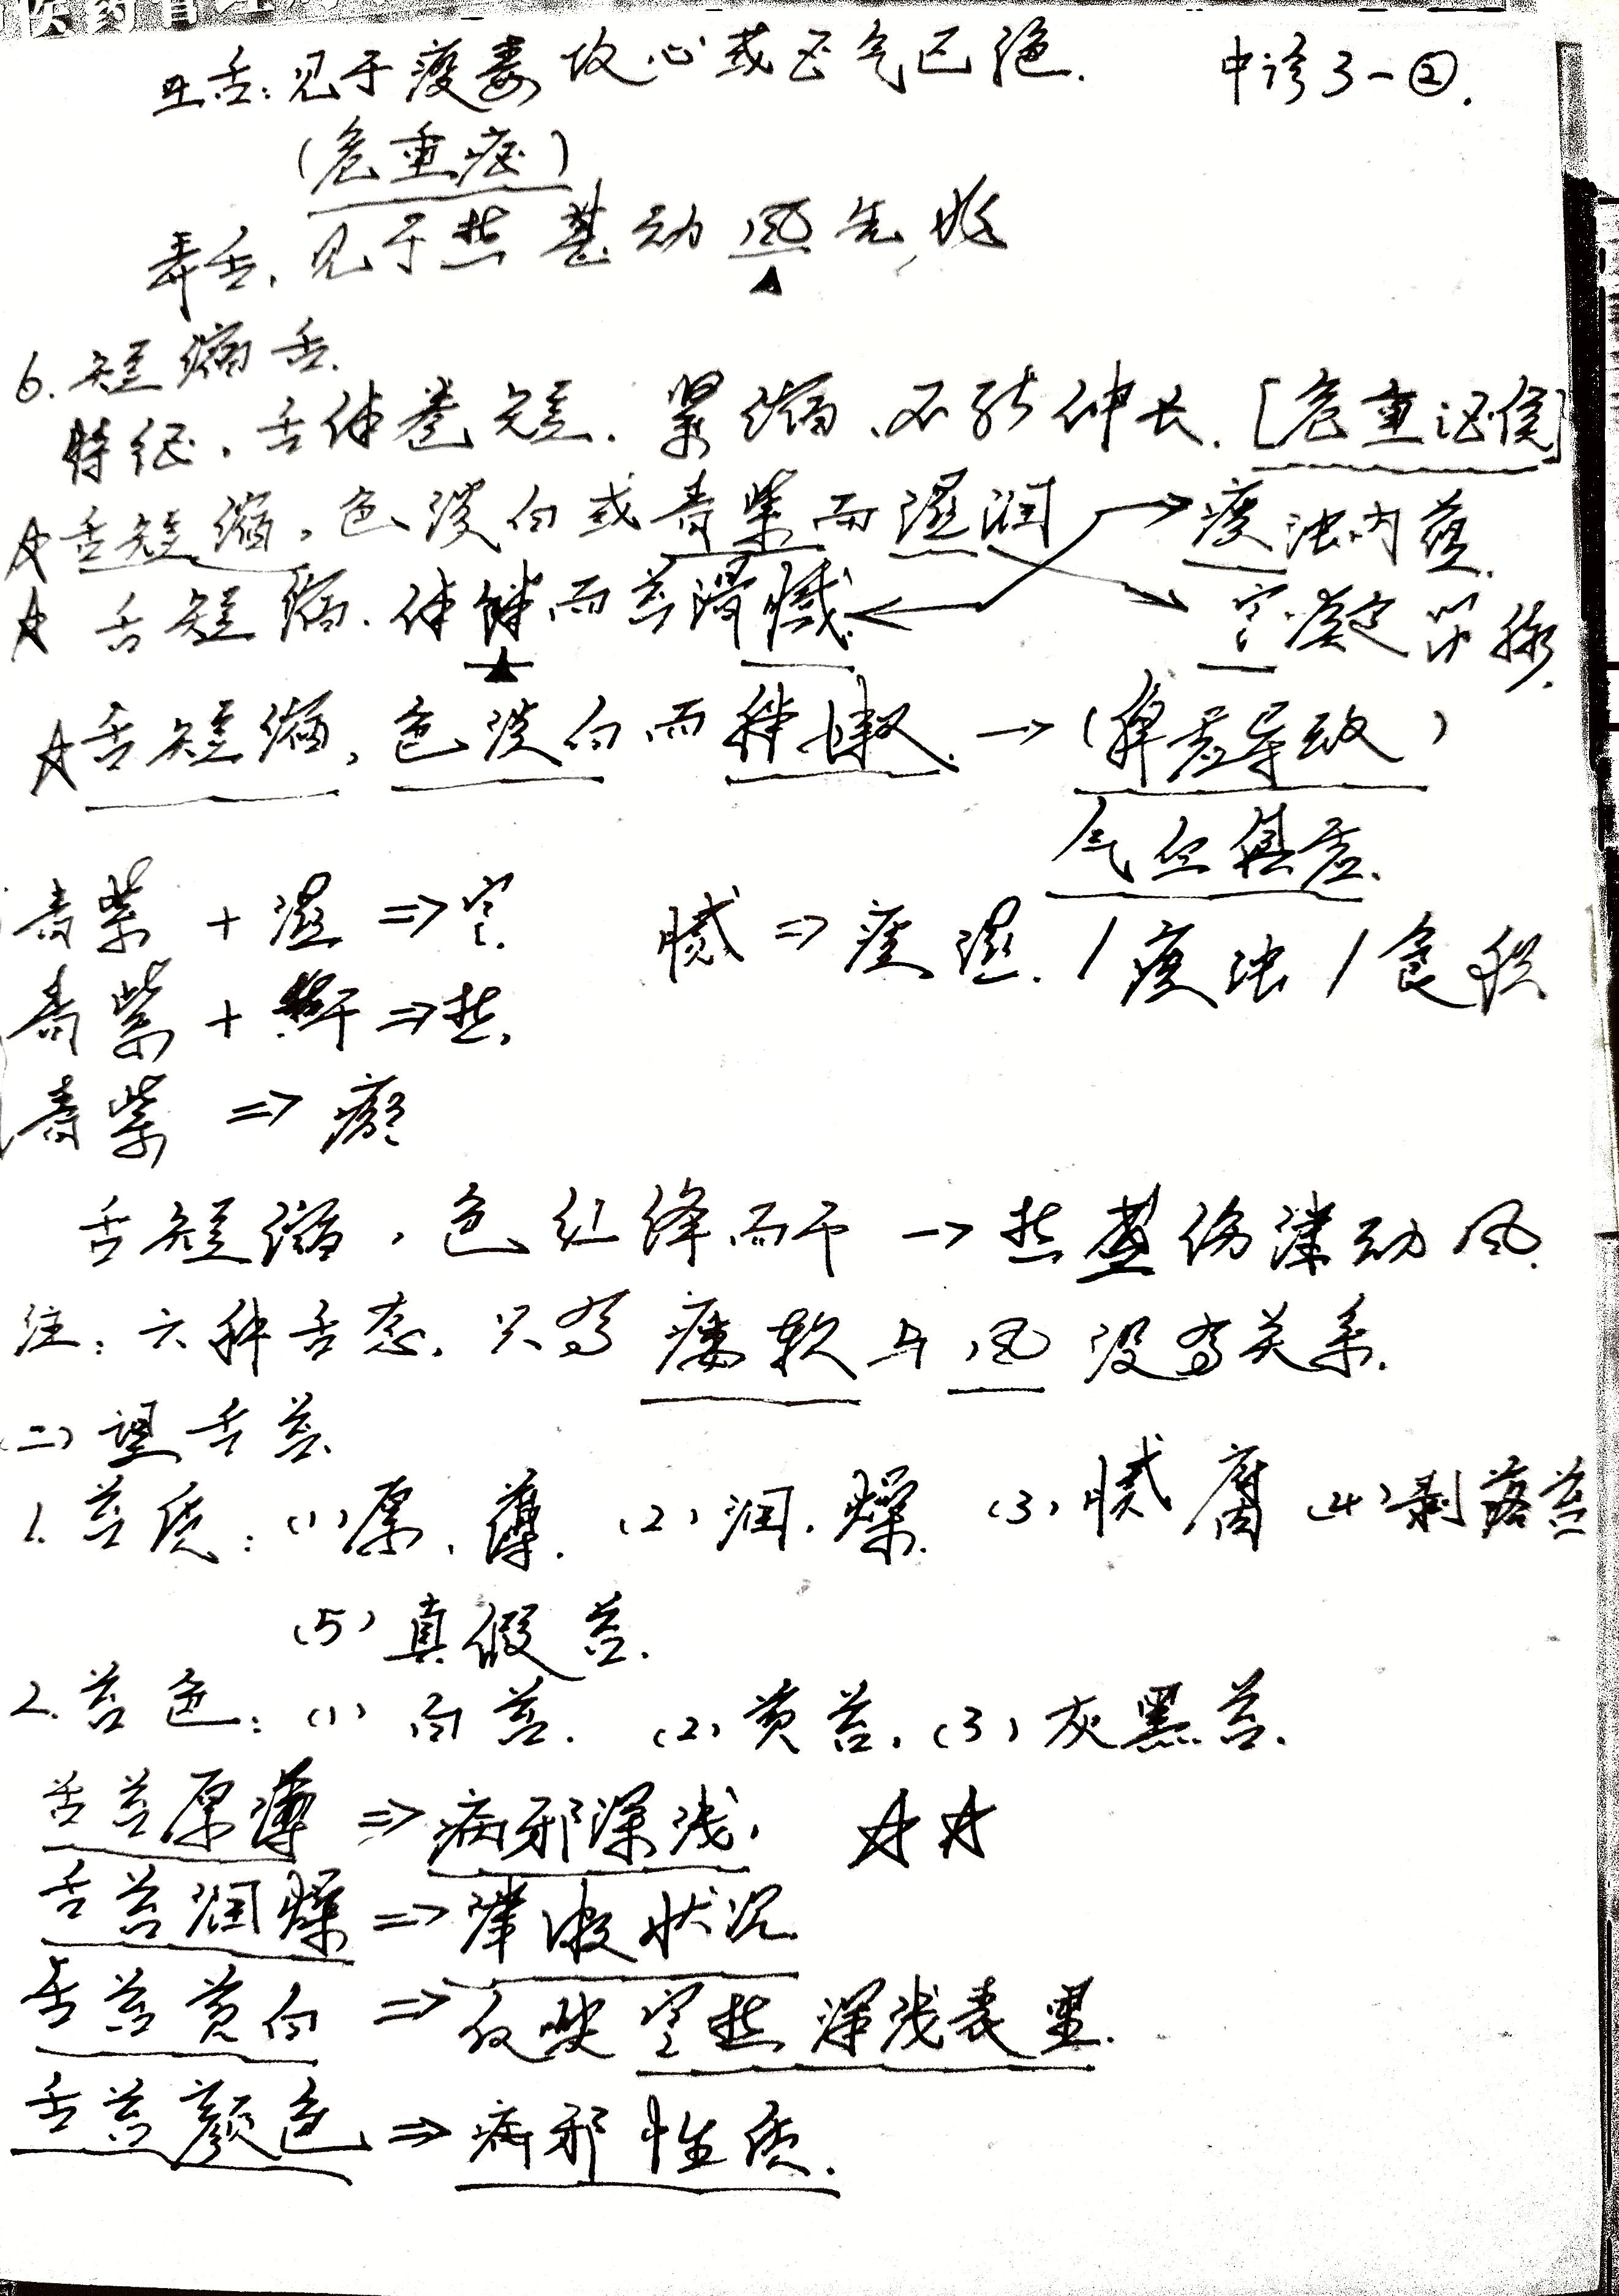 医药管理局
吐舌:见于疫毒攻心或正气已绝. 中诊3-②.
(危重症)
弄舌,见于热甚动风先兆
6.短缩舌.
特征,舌体卷短.紧缩、不能伸长.[危重证候]
☆舌短缩,色淡白或青紫而湿润 → 痰浊内蕴.
☆舌短缩.体胖而苔滑腻. 寒凝筋脉.
☆舌短缩,色淡白而胖嫩.→(脾虚导致)
气血俱虚.
青紫+湿⇒寒. 腻⇒痰湿./痰浊/食积
青紫+干⇒热.
青紫⇒瘀
舌短缩,色红绛而干→热盛伤津动风.
注:六种舌态,只有痿软与风没有关系.
(二)望舌苔.
1.苔质:(1)厚、薄.(2)润.燥.(3)腻腐(4)剥落苔
(5)真假苔.
2.苔色:(1)白苔.(2)黄苔.(3)灰黑苔.
舌苔厚薄⇒病邪深浅. ☆☆
舌苔润燥⇒津液状况
舌苔黄白⇒反映寒热深浅表里.
舌苔颜色⇒病邪性质.